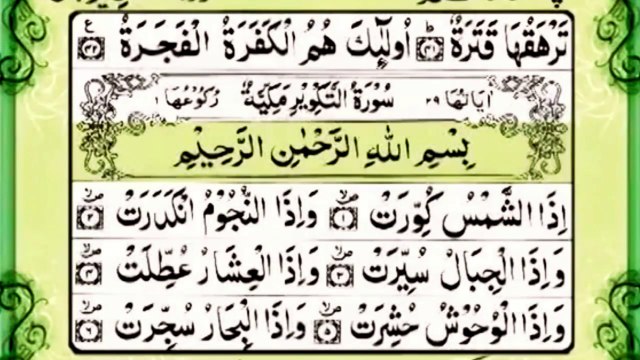 تَرْهَقُهَا قَتَرَةٌ ؕ﴿۴۱﴾ اُولٰٓئِكَ هُمُ الْكَفَرَةُ الْفَجَرَةُ ﴿۴۲﴾ ع
اٰيَاتُهَا ٢٩ سُوْرَةُ التَّكْوِيْرِ مَكِّيَّةٌ رُكُوْعُهَا ١
بِسْمِ اللّٰهِ الرَّحْمٰنِ الرَّحِيْمِ
اِذَا الشَّمْسُ كُوِّرَتْ ﴿۱﴾ وَاِذَا النُّجُوْمُ انْكَدَرَتْ ﴿۲﴾
وَاِذَا الْجِبَالُ سُيِّرَتْ ﴿۳﴾ وَاِذَا الْعِشَارُ عُطِّلَتْ ﴿۴﴾
وَاِذَا الْوُحُوْشُ حُشِرَتْ ﴿۵﴾ وَاِذَا الْبِحَارُ سُجِّرَتْ ﴿۶﴾